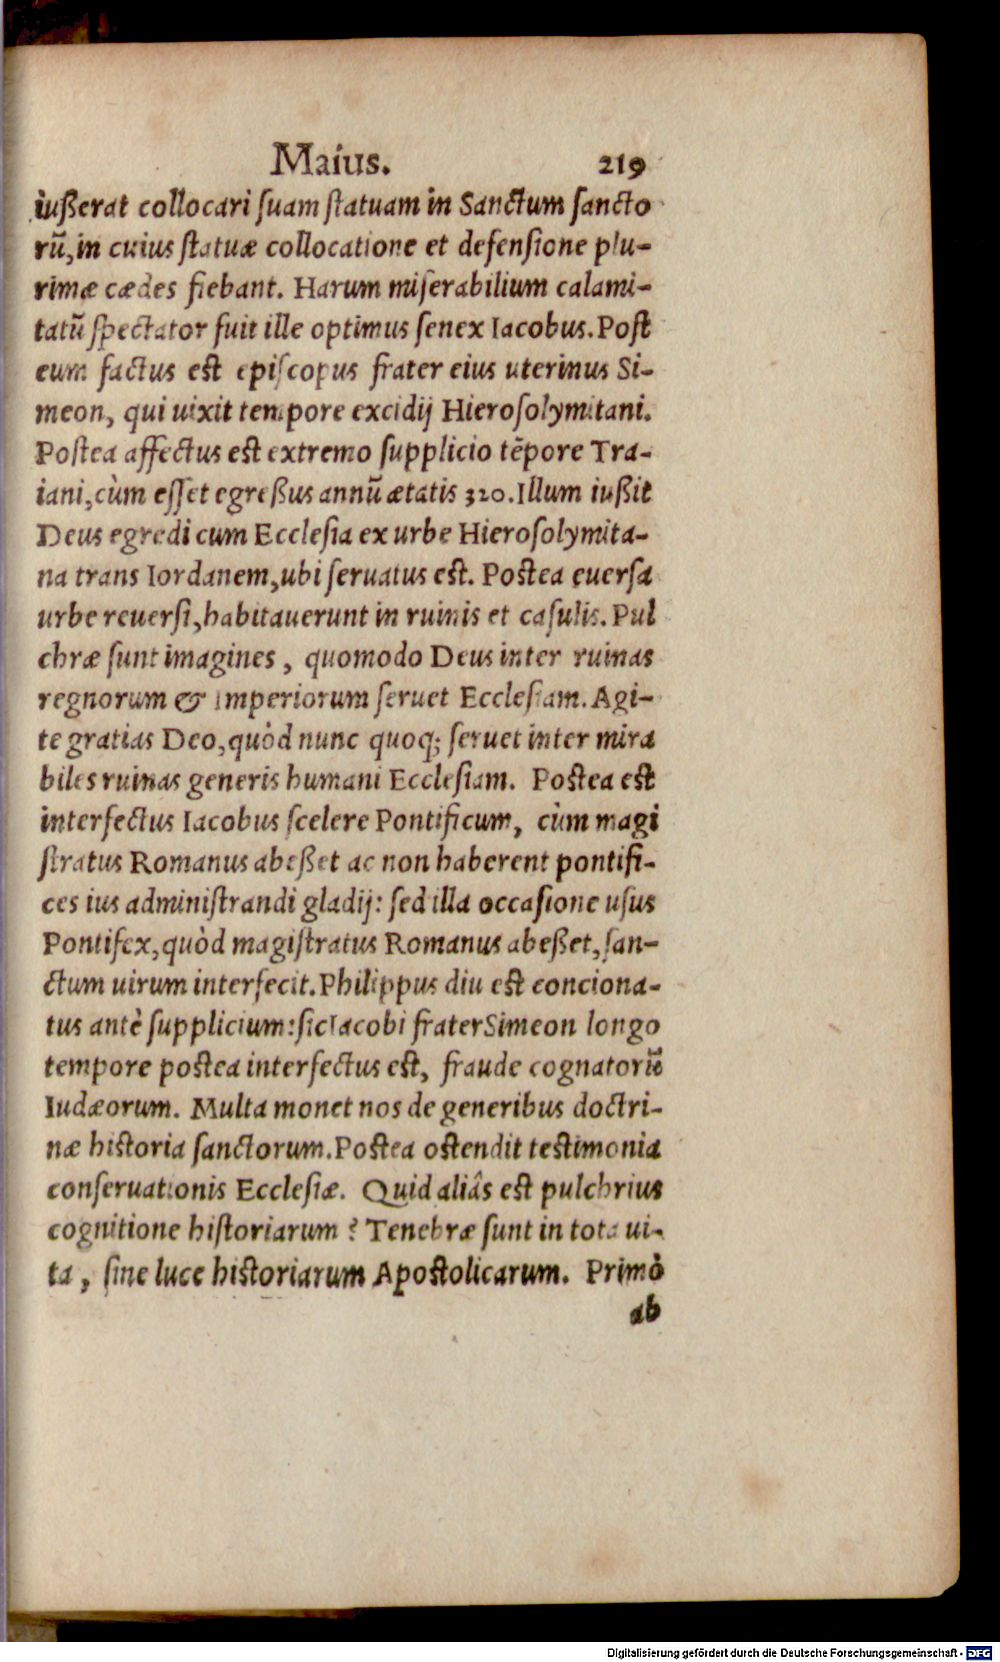 Maius. 219
iußerat collocari ſuam ſtatuam in Sanctum ſancto
rū, in cuius ſtatuæ collocatione et defenſione plu-
rimæ cædes fiebant. Harum miſerabilium calami-
tatū ſpectator fuit ille optimus ſenex Iacobus. Poſt
eum factus eſt epiſcopus frater eius uterinus Si-
meon, qui uixit tempore excidij Hieroſolymitani.
Poſtea affectus eſt extremo ſupplicio tēpore Tra-
iani, cùm eſſet egreßus annū ætatis 320. Illum iußit
Deus egredi cum Eccleſia ex urbe Hieroſolymita-
na trans Iordanem, ubi ſeruatus eſt. Poſtea euerſa
urbe reuerſi, habitauerunt in ruinis et caſulis. Pul
chræ ſunt imagines, quomodo Deus inter ruinas
regnorum & imperiorum ſeruet Eccleſiam. Agi-
te gratias Deo, quòd nunc quoq; ſeruet inter mira
biles ruinas generis humani Eccleſiam. Poſtea eſt
interfectus Iacobus ſcelere Pontificum, cùm magi
ſtratus Romanus abeßet ac non haberent pontifi-
ces ius adminiſtrandi gladij: ſed illa occaſione uſus
Pontifex, quòd magiſtratus Romanus abeßet, ſan-
ctum uirum interfecit. Philippus diu eſt conciona-
tus antè ſupplicium: ſic Iacobi frater Simeon longo
tempore poſtea interfectus eſt, fraude cognatorū
Iudæorum. Multa monet nos de generibus doctri-
næ hiſtoria ſanctorum. Poſtea oſtendit teſtimonia
conſeruationis Eccleſiæ. Quid aliâs eſt pulchrius
cognitione hiſtoriarum? Tenebræ ſunt in tota ui-
ta, ſine luce hiſtoriarum Apoſtolicarum. Primò
ab
Digitalisierung gefördert durch die Deutsche Forschungsgemeinschaft - DFG